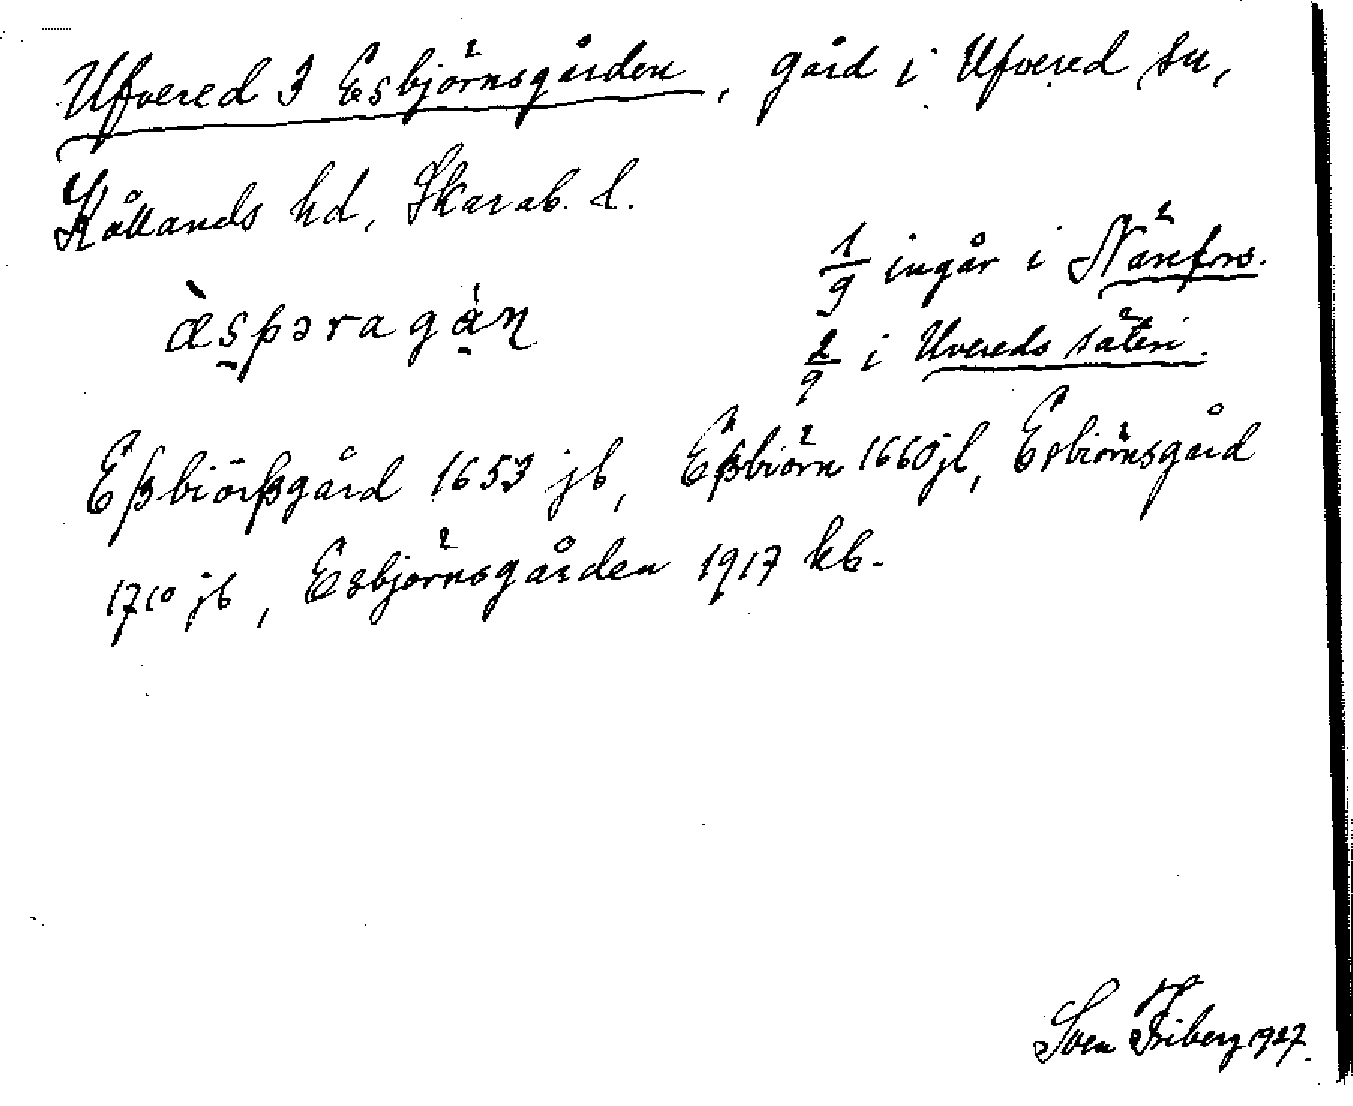 Ufvered 3 Esbjörnsgården, gård i Ufvered sn,
Kållands hd, Skarab. l.
1/9 ingår i Närefors.
æ̀spəragán
2/9 i Uvereds säteri.
Eßbiörßgård 1653 jb, Eßbiörn 1660 jb, Esbiörnsgård
1710 jb, Esbjörnsgården 1917 kb.
Sven Friberg 1927.